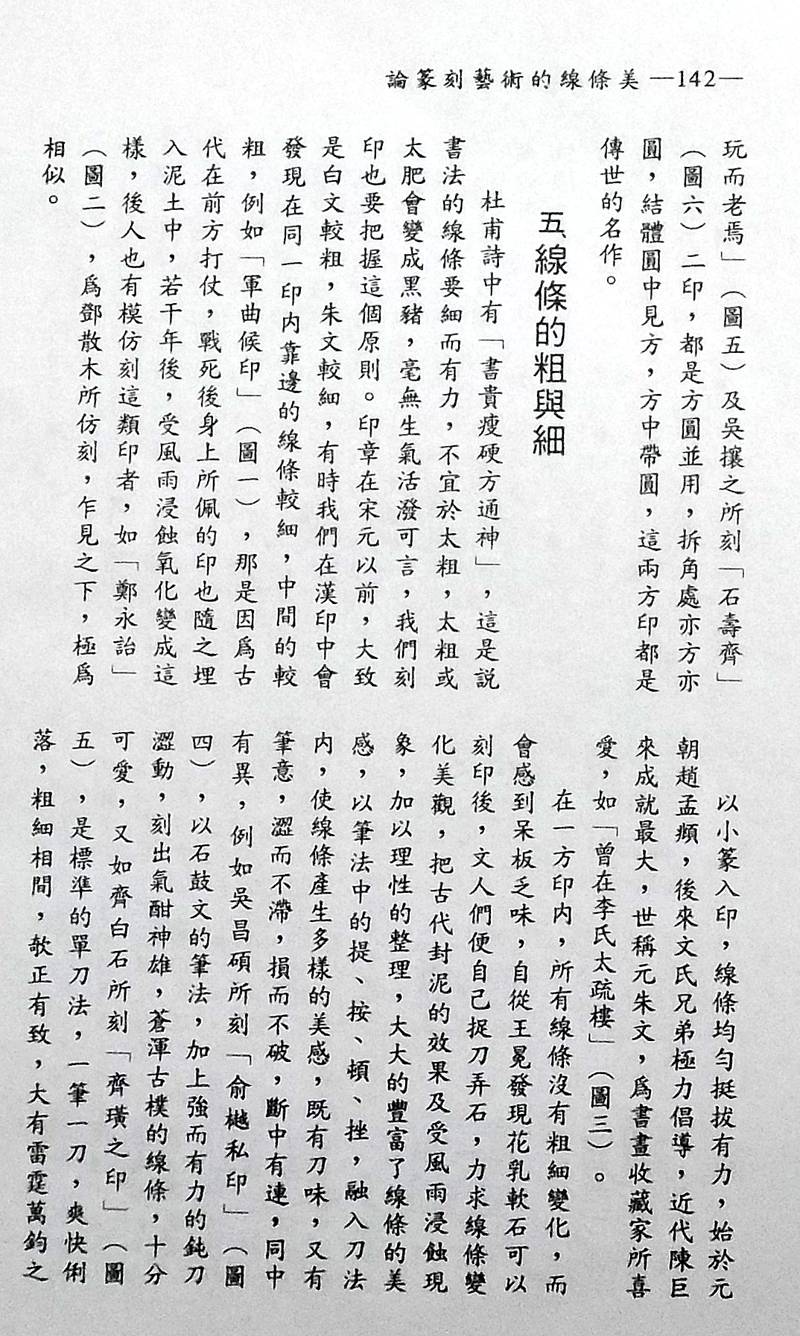 論篆刻藝術的線條美 —142—
玩而老焉」（圖五）及吳攘之所刻「石壽齊」
（圖六）二印，都是方圓並用，拆角處亦方亦
圓，結體圓中見方，方中帶圓，這兩方印都是
傳世的名作。
五、線條的粗與細
杜甫詩中有「書貴瘦硬方通神」，這是說
書法的線條要細而有力，不宜於太粗，太粗或
太肥會變成黑豬，毫無生氣活潑可言，我們刻
印也要把握這個原則。印章在宋元以前，大致
是白文較粗，朱文較細，有時我們在漢印中會
發現在同一印內靠邊的線條較細，中間的較
粗，例如「軍曲候印」（圖一），那是因爲古
代在前方打仗，戰死後身上所佩的印也隨之埋
入泥土中，若干年後，受風雨浸蝕氧化變成這
樣，後人也有模仿刻這類印者，如「鄭永詒」
（圖二），爲鄧散木所仿刻，乍見之下，極爲
相似。
以小篆入印，線條均勻挺拔有力，始於元
朝趙孟頫，後來文氏兄弟極力倡導，近代陳巨
來成就最大，世稱元朱文，爲書畫收藏家所喜
愛，如「曾在李氏太疏樓」（圖三）。
在一方印內，所有線條沒有粗細變化，而
會感到呆板乏味，自從王冕發現花乳軟石可以
刻印後，文人們便自己捉刀弄石，力求線條變
化美觀，把古代封泥的效果及受風雨浸蝕現
象，加以理性的整理，大大的豐富了線條的美
感，以筆法中的提、按、頓、挫，融入刀法
內，使線條產生多樣的美感，既有刀味，又有
筆意，澀而不滯，損而不破，斷中有連，同中
有異，例如吳昌碩所刻「俞樾私印」（圖
四），以石鼓文的筆法，加上強而有力的鈍刀
澀動，刻出氣酣神雄，蒼渾古樸的線條，十分
可愛，又如齊白石所刻「齊璜之印」（圖
五），是標準的單刀法，一筆一刀，爽快俐
落，粗細相間，欹正有致，大有雷霆萬鈞之